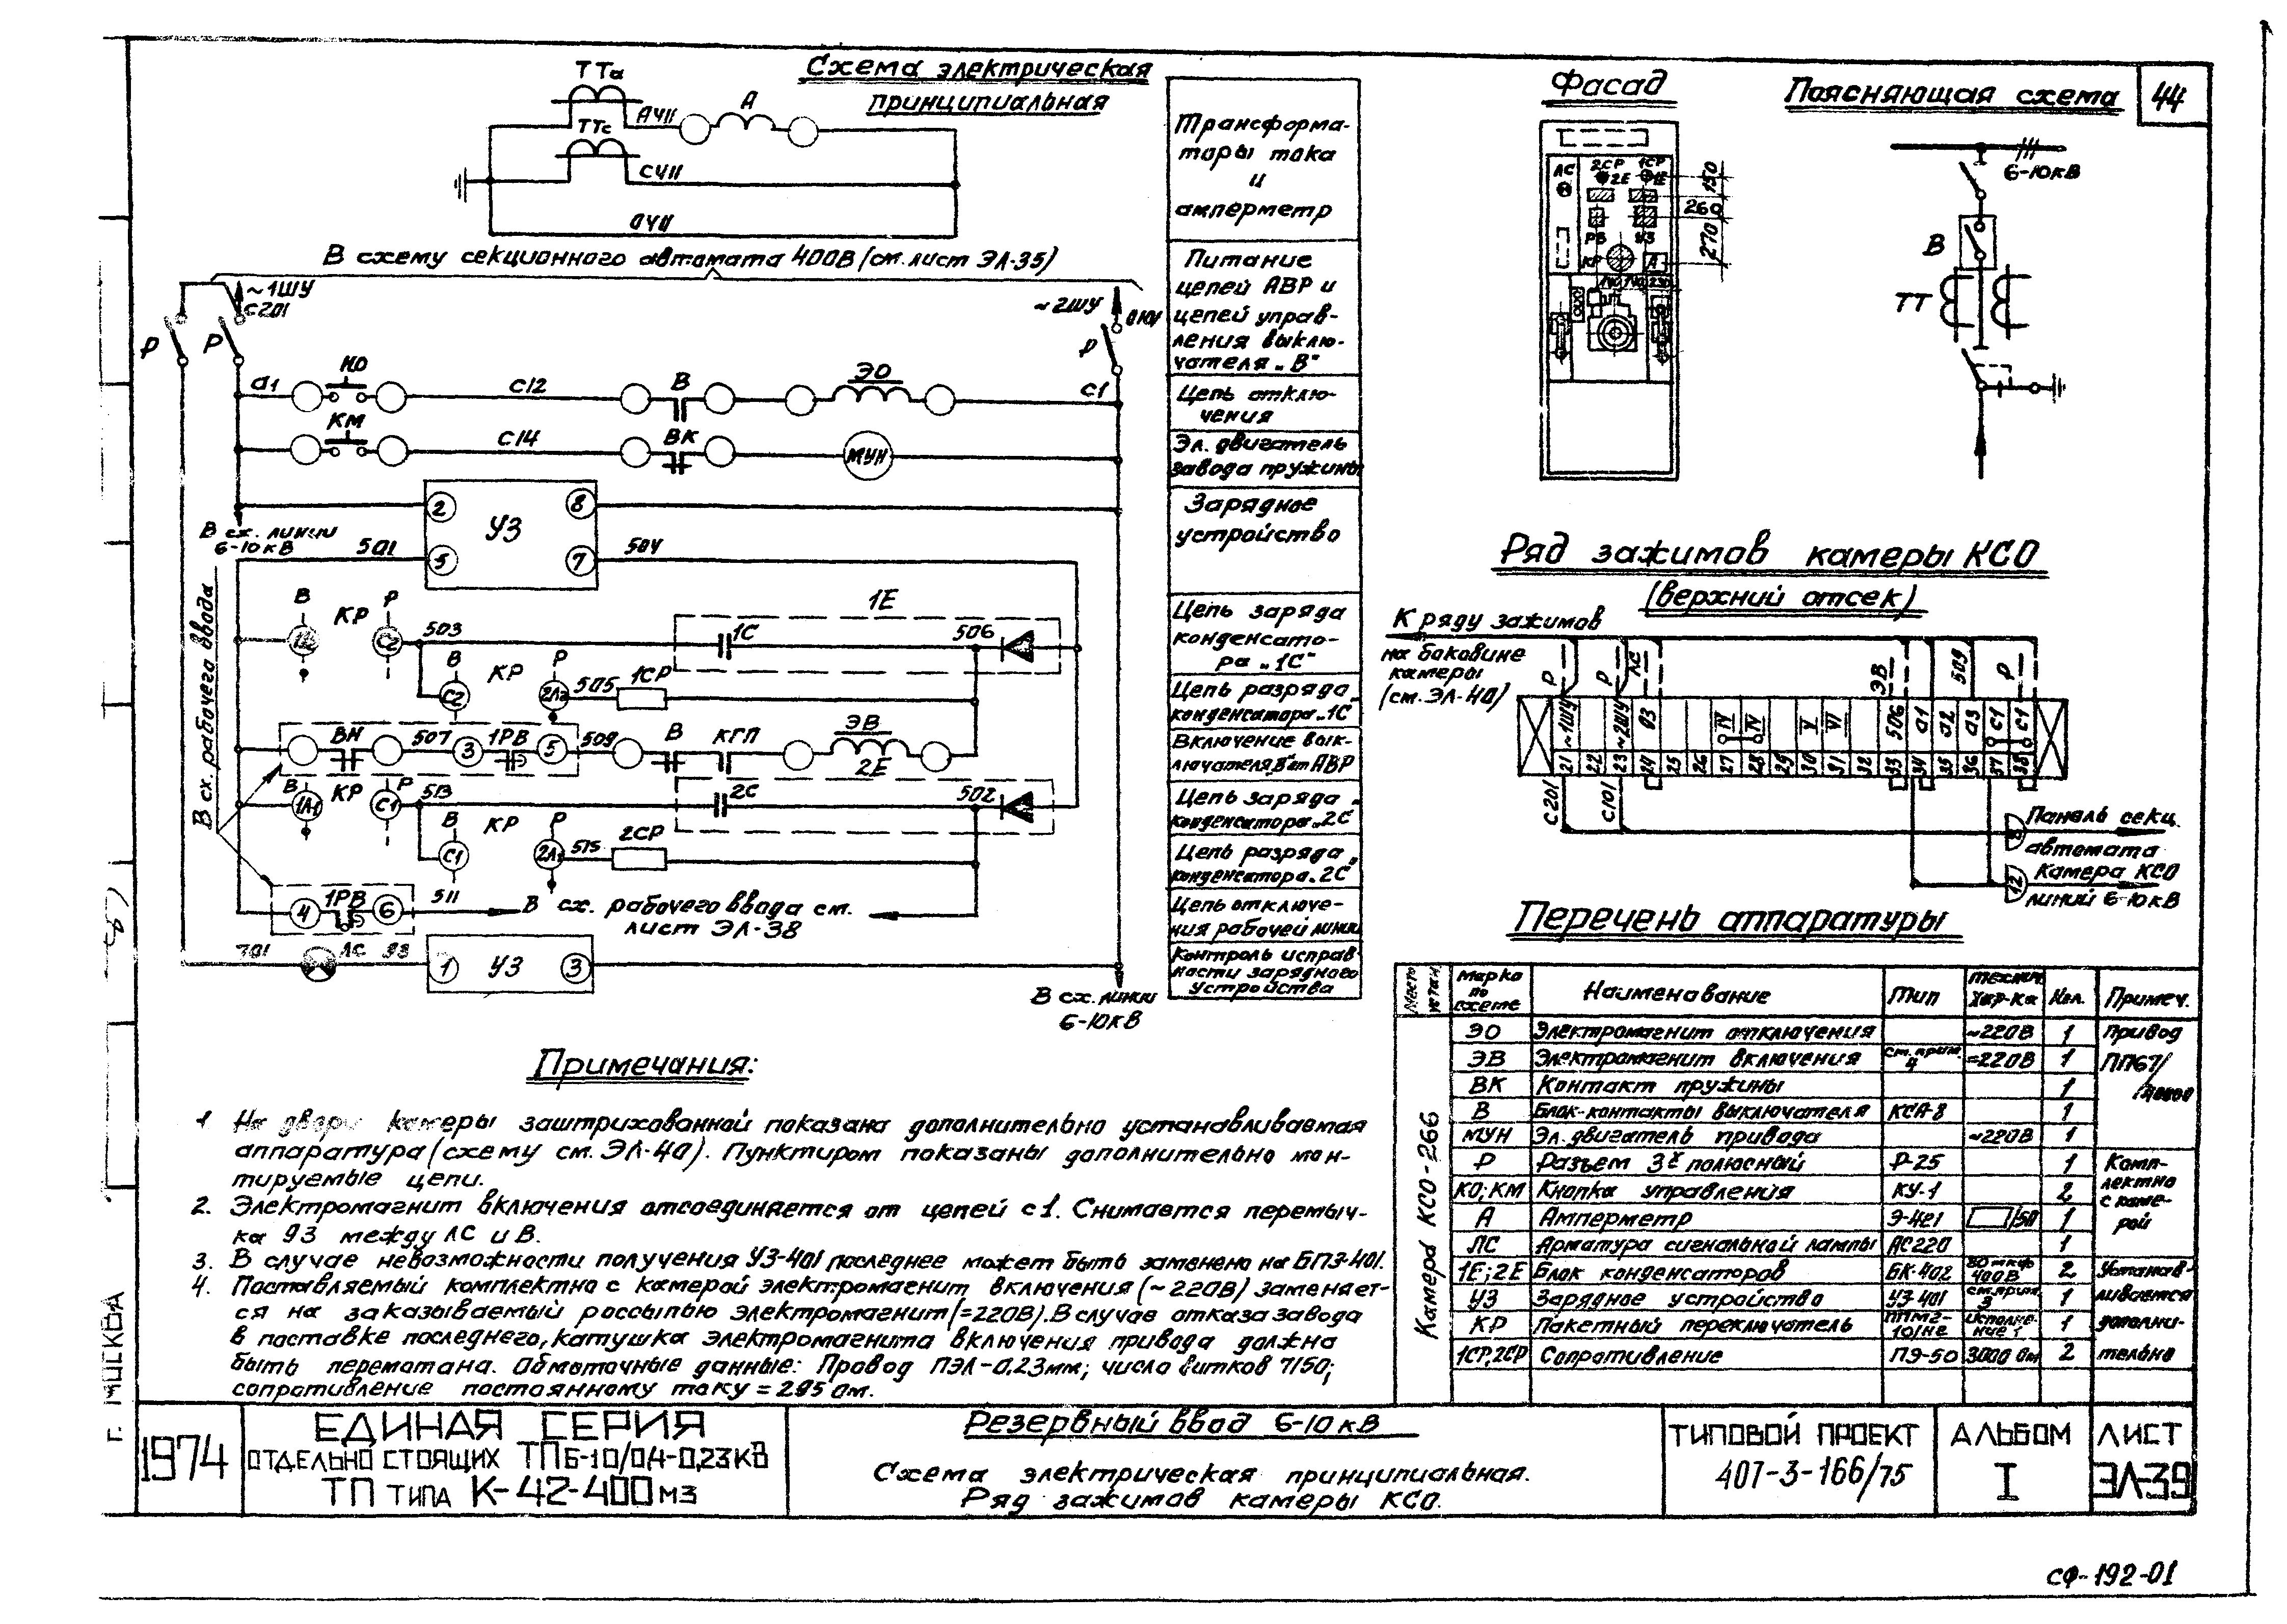 44
Схема электрическая
принципиальная
ТТа
А411
А
ТТс
С411
0411
Трансформа-
торы тока
и
амперметр
В схему секционного автомата 400В (см. лист ЭЛ-35)
~1ШУ
С201
~2ШУ
Р
Р
Р
Питание
цепей АВР и
цепей управ-
ления выклю-
чателя „В"
а1
КО
С12
В
ЭО
С1
Цепь отклю-
чения
КМ
С14
ВК
МУН
Эл. двигатель
завода пружины
2
УЗ
8
5
7
В сх. линии
6-10кВ
501
504
Зарядное
устройство
В сх. рабочего ввода
В
КР
Р
С2
503
1С
1Е
506
Цепь заряда
конденсато-
ра „1С"
В
С2
КР
Р
505
1СР
Цепь разряда
конденсатора „1С"
ВН
507
3
1РВ
5
509
В
КГП
ЭВ
2Е
Включение вык-
лючателя „В" от АВР
В
1Л1
КР
С1
Р
513
2С
502
Цепь заряда
конденсатора „2С"
В
С1
КР
Р
2Л1
515
2СР
Цепь разряда
конденсатора „2С"
4
1РВ
6
511
В сх. рабочего ввода см.
лист ЭЛ-38
Цепь отключе-
ния рабочей линии
701
ЛС
93
1
УЗ
3
Контроль исправ-
ности зарядного
устройства
В сх. линии
6-10кВ
Фасад
ЛС
2СР
1СР
2Е
1Е
РВ
УЗ
КР
А
150
260
270
Поясняющая схема
6-10кВ
В
ТТ
Ряд зажимов камеры КСО
(верхний отсек)
К ряду зажимов
на боковине
камеры
(см. ЭЛ-40)
Р
Р
ЛС
ЭВ
509
Р
~1ШУ
~2ШУ
93
IV
IV
V
VI
506
а1
а2
а3
С1
С1
21
22
23
24
25
26
27
28
29
30
31
32
33
34
35
36
37
38
С201
С101
Панель секц.
автомата
12
Камера КСО
линий 6-10кВ
Перечень аппаратуры
Место устан.
Марка по схеме
Наименование
Тип
Технич. хар-ка
Кол.
Примеч.
Камера КСО-266
ЭО Электромагнит отключения ~220В 1 Привод
ЭВ Электромагнит включения см. прим. 4 =220В 1 ПП67/
ВК Контакт пружины 1
В Блок-контакты выключателя КСА-8 1
МУН Эл. двигатель привода ~220В 1
Р Разъем 3х полюсный Р-25 1 Комп-
КО; КМ Кнопка управления КУ-1 2 лектно
А Амперметр Э-421 /50 1 с каме-
рой
ЛС Арматура сигнальной лампы АС220 1
1Е; 2Е Блок конденсаторов БК-402 80 мкф 400В 2 Устанав-
УЗ Зарядное устройство УЗ-401 см. прим. 3 1 ливается
КР Пакетный переключатель ППМ2-10/Н2 Исполне-ние 1 1 дополни-
1СР, 2СР Сопротивление ПЭ-50 3000 Ом 2 тельно
Примечания:
1 На двери камеры заштрихованной показана дополнительно устанавливаемая
аппаратура (схему см. ЭЛ-40). Пунктиром показаны дополнительно мон-
тируемые цепи.
2. Электромагнит включения отсоединяется от цепей с1. Снимается перемыч-
ка 93 между ЛС и В.
3. В случае невозможности получения УЗ-401 последнее может быть заменено на БПЗ-401.
4. Поставляемый комплектно с камерой электромагнит включения (~220В) заменяет-
ся на заказываемый россыпью электромагнит (=220В). В случае отказа завода
в поставке последнего, катушка электромагнита включения привода должна
быть перемотана. Обмоточные данные: Провод ПЭЛ-0,23мм; число витков 7150;
сопротивление постоянному току = 295 Ом.
г. МОСКВА
1974
ЕДИНАЯ СЕРИЯ
ОТДЕЛЬНО СТОЯЩИХ ТП 6-10/0,4-0,23КВ
ТП ТИПА К-42-400 М3
Резервный ввод 6-10кВ
Схема электрическая принципиальная.
Ряд зажимов камеры КСО.
ТИПОВОЙ ПРОЕКТ
407-3-166/75
АЛЬБОМ
I
ЛИСТ
ЭЛ-39
СФ-192-01